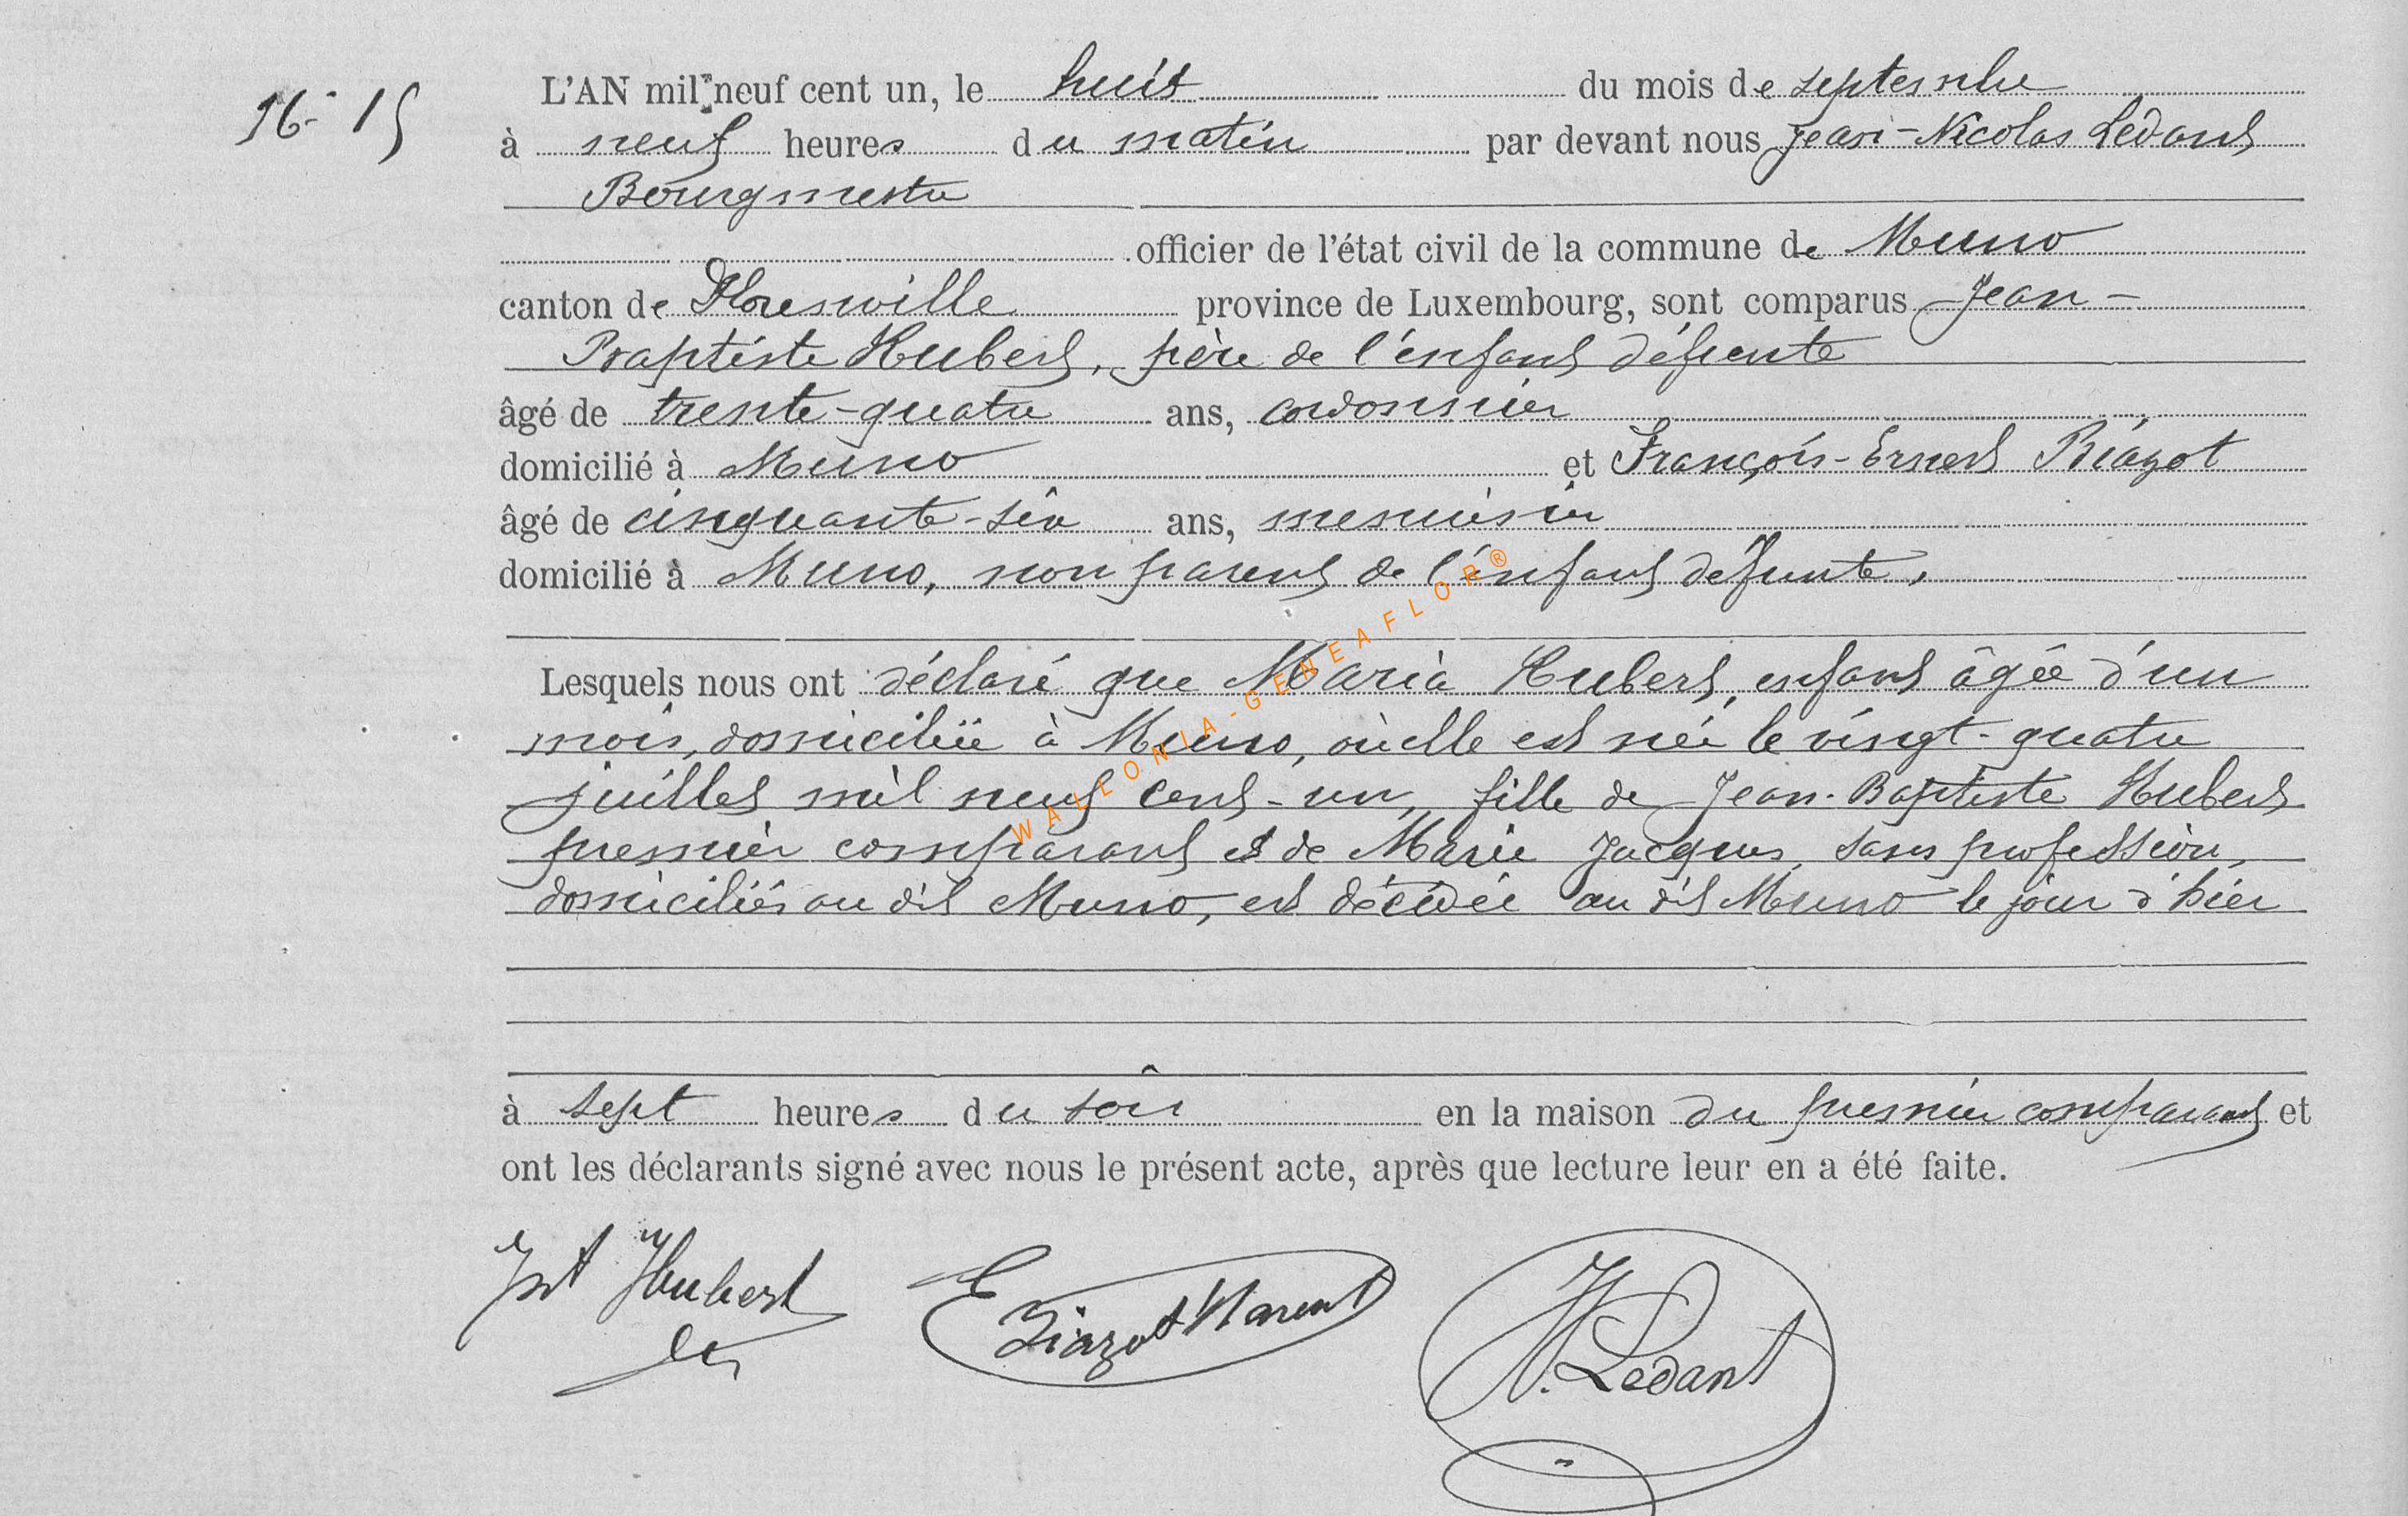 N° 15
L'AN mil neuf cent un, le huit du mois de septembre
à neuf heures du matin par devant nous Jean-Nicolas Ledant
Bourgmestre
officier de l'état civil de la commune de Muno
canton de Florenville province de Luxembourg, sont comparus Jean-
Baptiste Hubert, père de l'enfant défunte
âgé de trente-quatre ans, cordonnier
domicilié à Muno et François-Ernest Biazot
âgé de cinquante-six ans, menuisier
domicilié à Muno, non parent de l'enfant défunte,
Lesquels nous ont déclaré que Maria Hubert, enfant âgée d'un
mois, domiciliée à Muno, où elle est née le vingt-quatre
juillet mil neuf cent-un, fille de Jean-Baptiste Hubert
premier comparant et de Marie Jacques, sans profession,
domiciliés au dit Muno, est décédée au dit Muno le jour d'hier
à sept heures du soir en la maison du premier comparant et
ont les déclarants signé avec nous le présent acte, après que lecture leur en a été faite.
Jbt Hubert E Biazot N. Ledant
WALLONIA-GENEAFLOR®